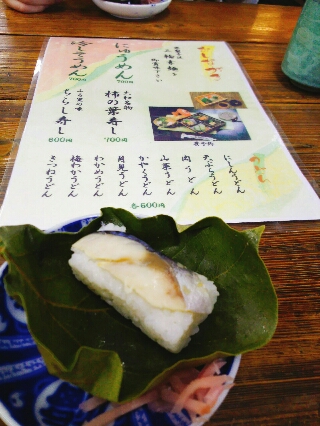 当店では
三輪素麺を
にゅうめん
700円
冷しそうめん
700円
大和名物
柿の葉寿し
700円
山の里の幸
ちらし寿し
600円
にしんうどん
天ぷらうどん
肉うどん
山菜うどん
かやくうどん
月見うどん
わかめうどん
梅わかうどん
きつねうどん
各600円